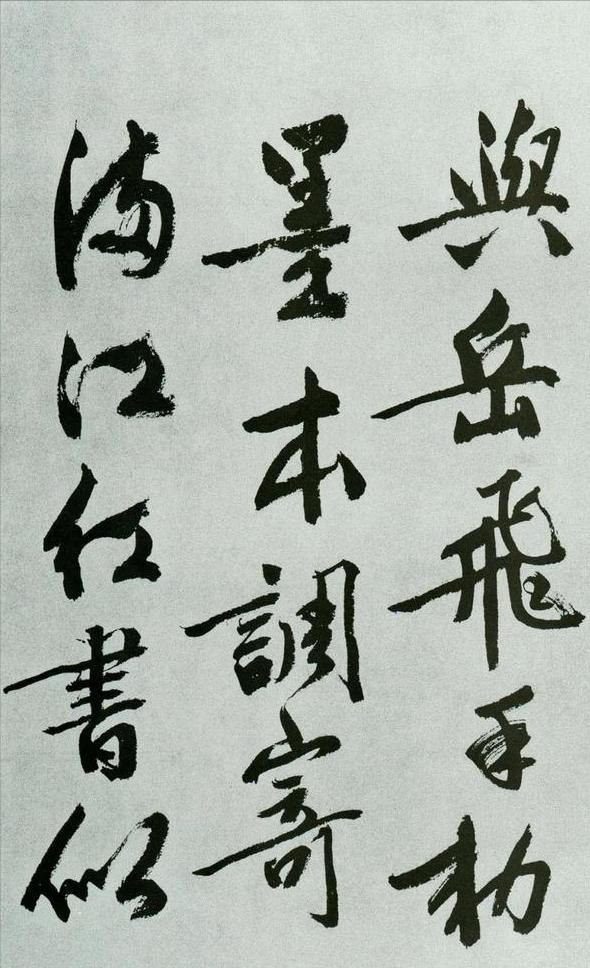 與岳飛手勑
墨本調寄
滿江紅書似